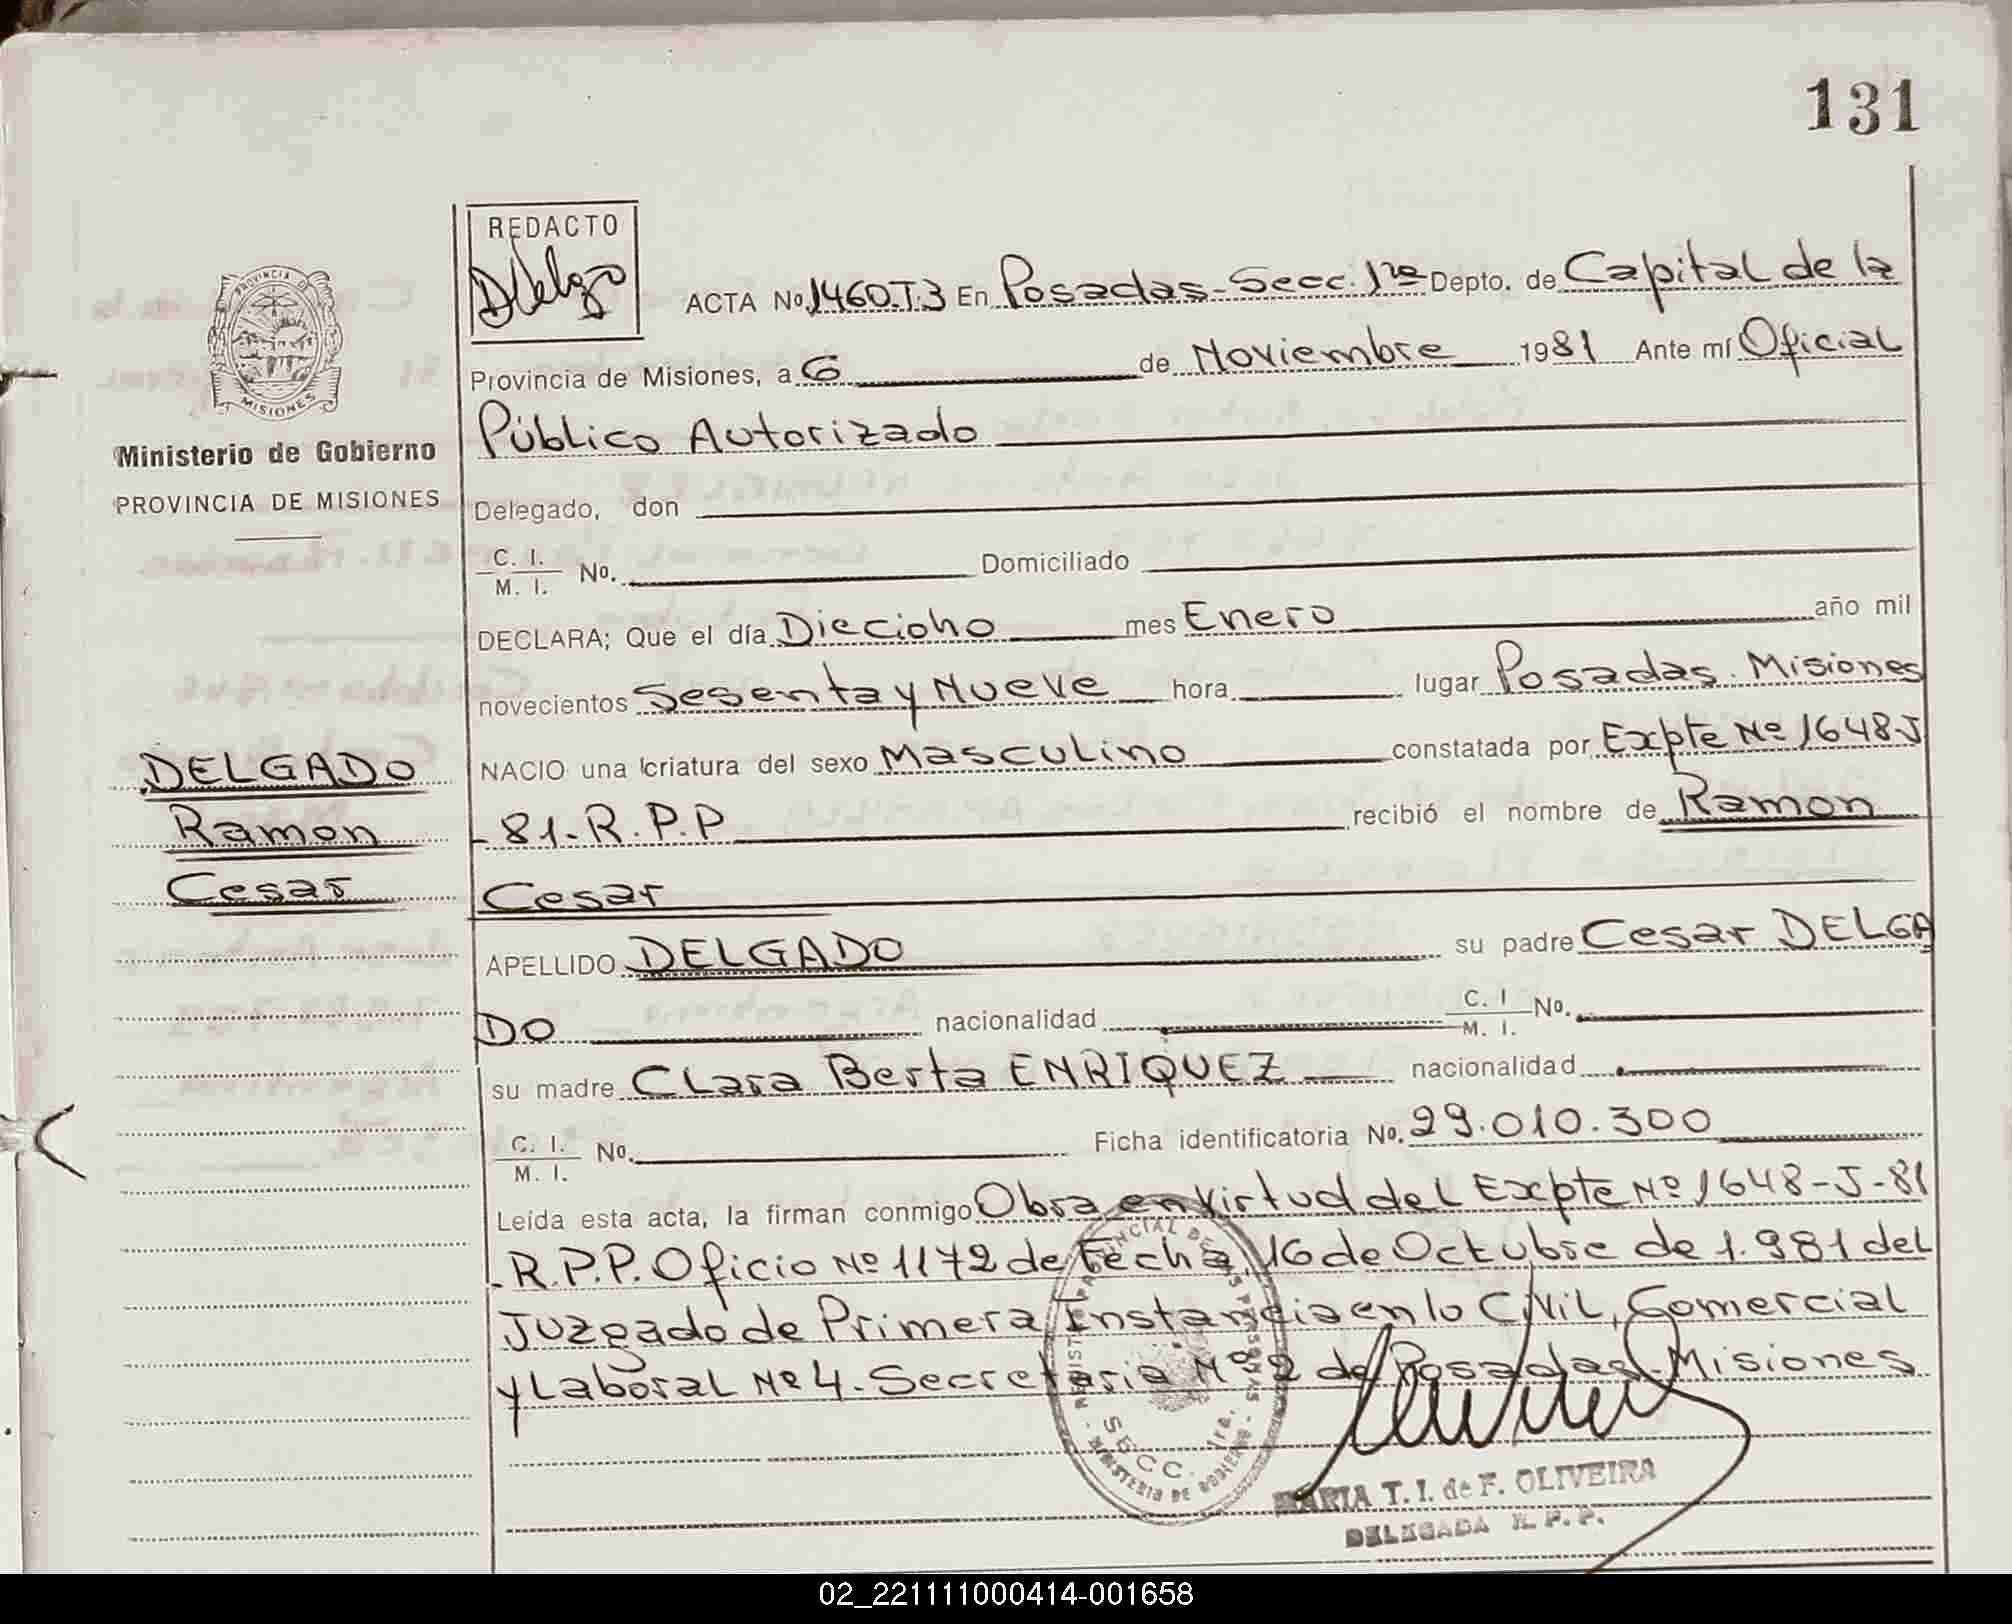 131
REDACTO
Delgado
ACTA No. 1460.T.3 En Posadas-Secc. 1ra Depto. de Capital de la
Provincia de Misiones, a 6 de Noviembre 1981 Ante mí Oficial
Público Autorizado
Delegado, don
C. I.
M. I. No. Domiciliado
DECLARA; Que el día Diecioho mes Enero año mil
novecientos Sesenta y Nueve hora lugar Posadas. Misiones
NACIO una criatura del sexo Masculino constatada por Expte Nº 1648-J
-81-R.P.P recibió el nombre de Ramon
Cesar
APELLIDO DELGADO su padre Cesar DELGA
DO nacionalidad C. I. M. I. No.
su madre Clara Berta ENRIQUEZ nacionalidad
C. I.
M. I. No. Ficha identificatoria No. 29.010.300
Leída esta acta, la firman conmigo Obra en Virtud del Expte Nº 1648-J-81
-R.P.P. Oficio Nº 1172 de Fecha, 16 de Octubre de 1.981 del
Juzgado de Primera Instancia en lo Civil, Comercial
y Laboral Nº 4. Secretaria Nº 2 de Posadas-Misiones
PROVINCIA DE
MISIONES
Ministerio de Gobierno
PROVINCIA DE MISIONES
DELGADO
Ramon
Cesar
SECC. 1ra.
MINISTERIO DE GOBIERNO
MARIA T. I. de F. OLIVEIRA
DELEGADA R. P. P.
02_221111000414-001658